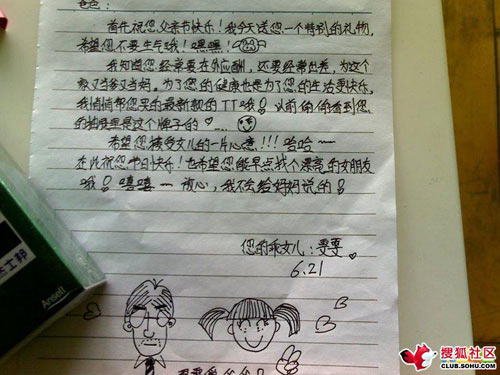 爸爸：
首先祝您父亲节快乐！我今天送您一个特别的礼物，
希望您不要生气哦！嘿嘿！
我知道您经常要在外应酬，还要经常出差，为这个
家又当爹又当妈。为了您的健康也是为了您的生活更快乐，
我悄悄帮您买的最新款的TT哦！以前偷偷看到您
的抽屉里是这个牌子的……
希望您接受女儿的一片心意！！！哈哈~~
在此祝您节日快乐！也希望您能早点找个漂亮的女朋友
哦！嘻嘻~~ 放心，我不会给妈妈说的！
您的乖女儿：
6.21
士邦
Ansell
搜狐社区
CLUB.SOHU.COM